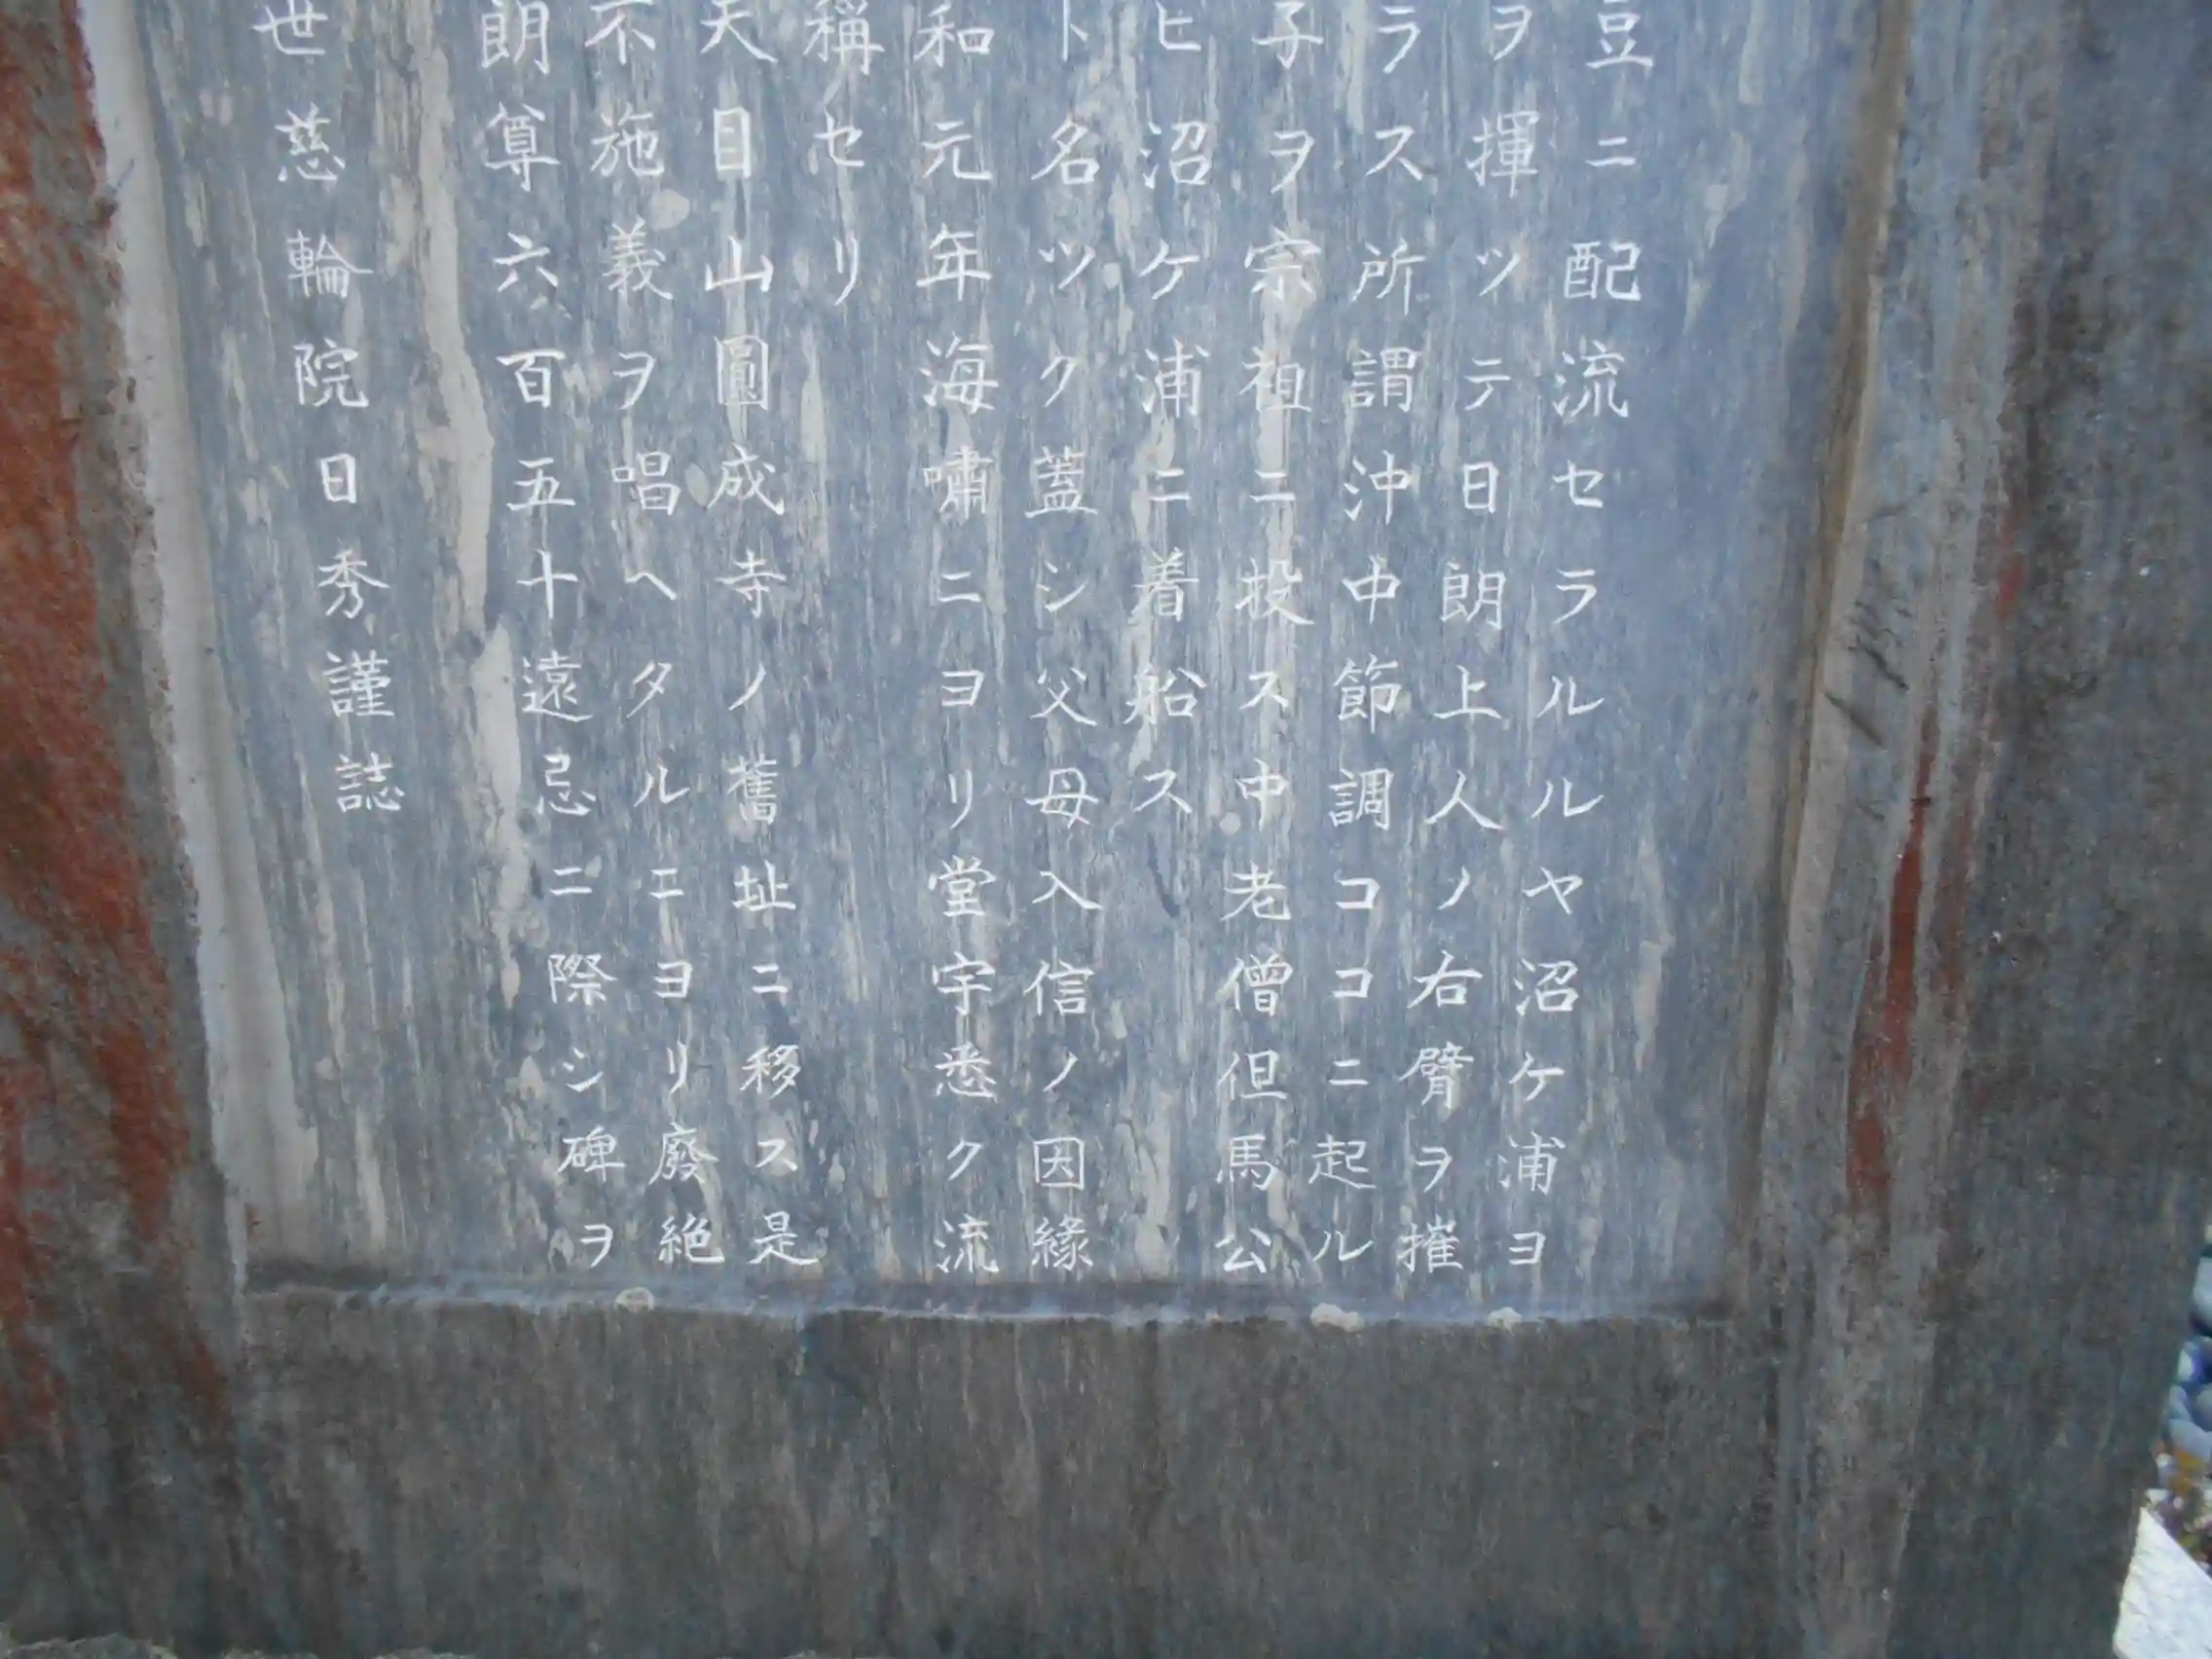 豆ニ配流セラルルヤ沼ケ浦ヨ
ヲ揮ツテ日朗上人ノ右臂ヲ摧
ラス所謂沖中節調ココニ起ル
子ヲ宗祖ニ投ス中老僧但馬公
ヒ沼ケ浦ニ着船ス
ト名ツク蓋シ父母入信ノ因緣
和元年海嘯ニヨリ堂宇悉ク流
稱セリ
天目山圓成寺ノ舊址ニ移ス是
不施義ヲ唱ヘタルエヨリ廢絶
朗尊六百五十遠忌ニ際シ碑ヲ
世慈輪院日秀謹誌